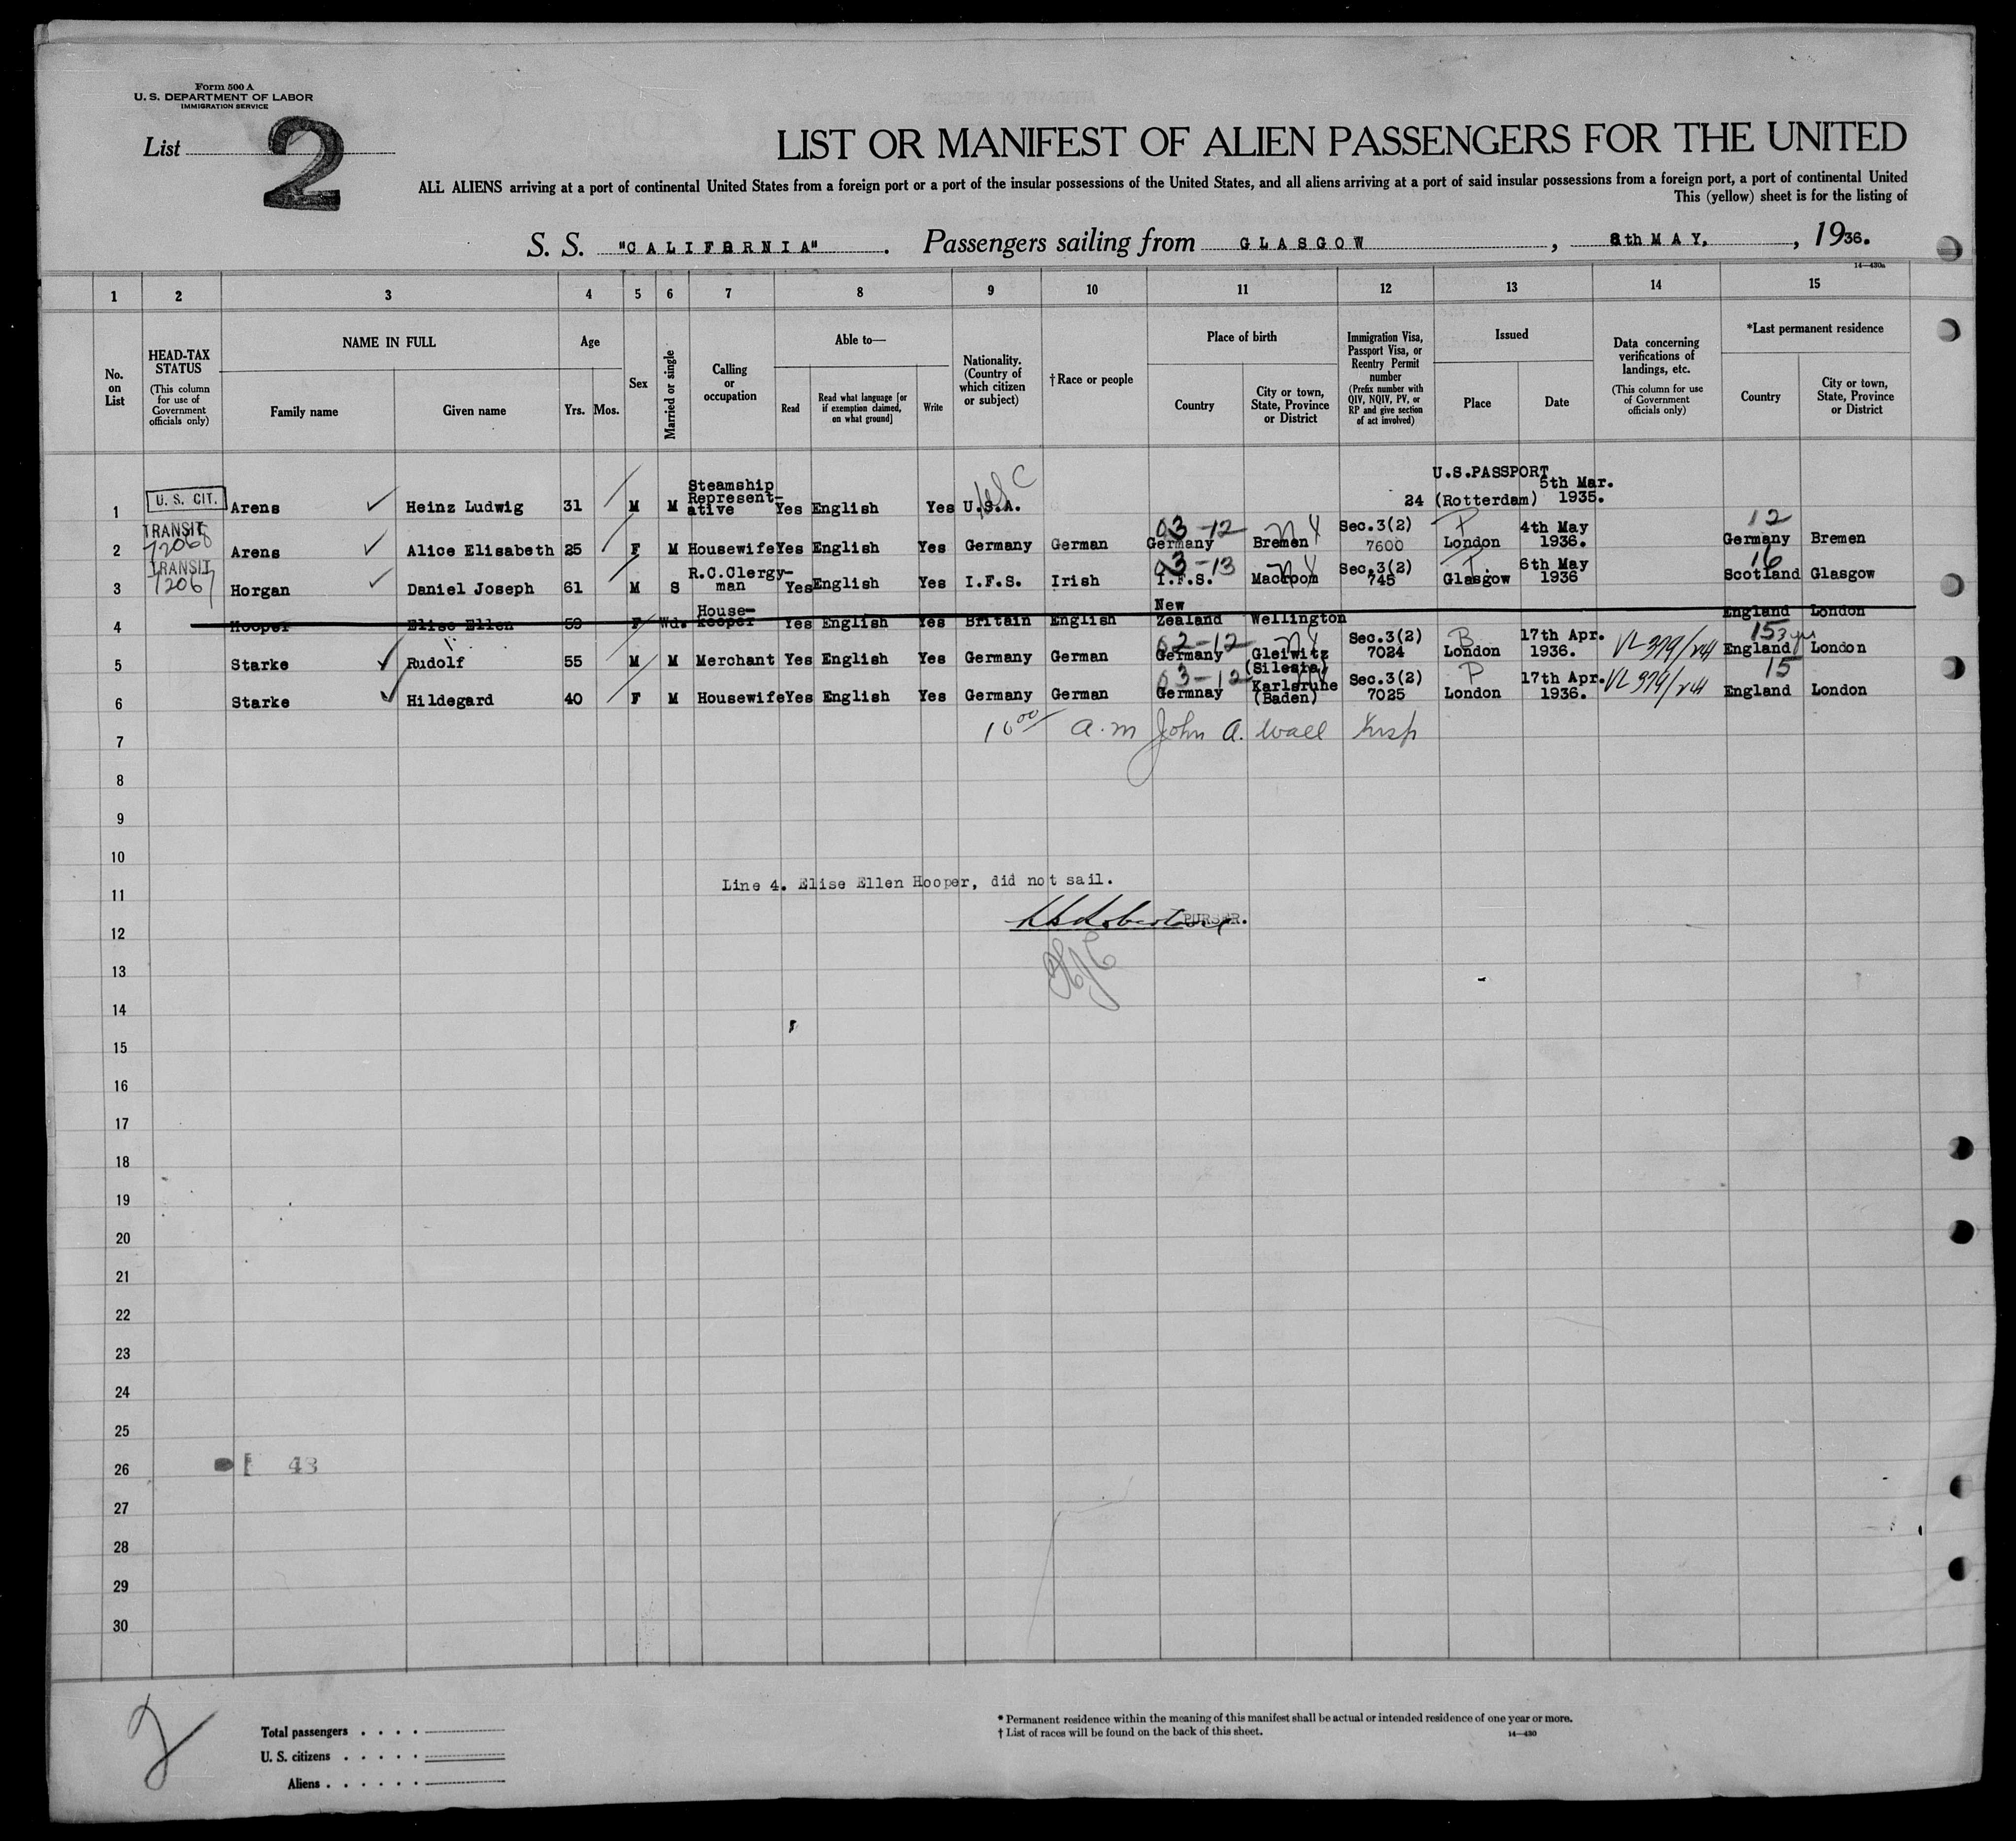 Form 500 A
U. S. DEPARTMENT OF LABOR
IMMIGRATION SERVICE
List 2
LIST OR MANIFEST OF ALIEN PASSENGERS FOR THE UNITED
ALL ALIENS arriving at a port of continental United States from a foreign port or a port of the insular possessions of the United States, and all aliens arriving at a port of said insular possessions from a foreign port, a port of continental United
This (yellow) sheet is for the listing of
S. S. "CALIFORNIA" . Passengers sailing from GLASGOW , 8th MAY, , 1936.
14—430a
1 2 3 4 5 6 7 8 9 10 11 12 13 14 15
No. on List
HEAD-TAX STATUS (This column for use of Government officials only)
NAME IN FULL
Family name
Given name
Age
Yrs. Mos.
Sex
Married or single
Calling or occupation
Able to—
Read
Read what language [or if exemption claimed, on what ground]
Write
Nationality. (Country of which citizen or subject)
† Race or people
Place of birth
Country
City or town, State, Province or District
Immigration Visa, Passport Visa, or Reentry Permit number (Prefix number with QIV, NQIV, PV, or RP and give section of act involved)
Issued
Place
Date
Data concerning verifications of landings, etc. (This column for use of Government officials only)
*Last permanent residence
Country
City or town, State, Province or District
1 U. S. CIT. Arens Heinz Ludwig 31 M M Steamship Represent-ative Yes English Yes U.S.A. 24 U.S.PASSPORT (Rotterdam) 5th Mar. 1935.
2 TRANSIT 12068 Arens Alice Elisabeth 25 F M Housewife Yes English Yes Germany German 03-12 Germany Bremen Sec.3(2) 7600 London 4th May 1936. 12 Germany Bremen
3 TRANSIT 12067 Horgan Daniel Joseph 61 M S R.C.Clergy-man Yes English Yes I.F.S. Irish 03-13 I.F.S. Macroom Sec.3(2) 745 Glasgow 6th May 1936 16 Scotland Glasgow
4 Hooper Elise Ellen 59 F Wd. House-keeper Yes English Yes Britain English New Zealand Wellington England London
5 Starke Rudolf 55 M M Merchant Yes English Yes Germany German 02-12 Germany Gleiwitz (Silesia) Sec.3(2) 7024 B London 17th Apr. 1936. 15 3 yrs England London
6 Starke Hildegard 40 F M Housewife Yes English Yes Germany German 03-12 Germnay Karlsruhe (Baden) Sec.3(2) 7025 P London 17th Apr. 1936. 15 England London
7 10 00 a.m John A. Wall Insp
8
9
10
Line 4. Elise Ellen Hooper, did not sail.
11
PURSER.
12
13
14
15
16
17
18
19
20
21
22
23
24
25
26 43
27
28
29
30
2
Total passengers . . . .
U. S. citizens . . . . .
Aliens . . . . . .
* Permanent residence within the meaning of this manifest shall be actual or intended residence of one year or more.
† List of races will be found on the back of this sheet.
14—430